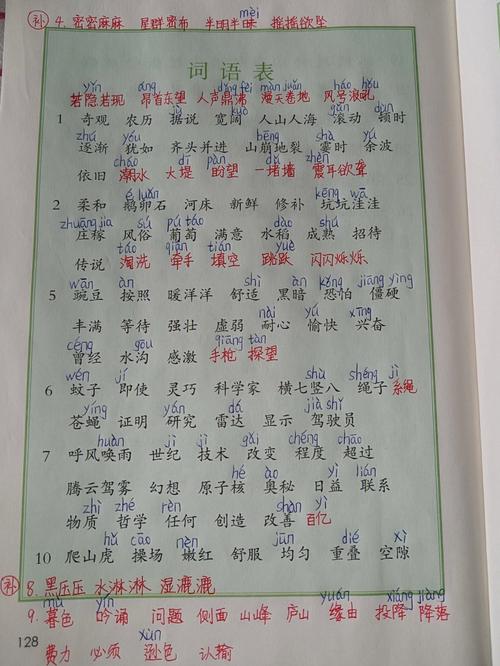 mèi
补 4. 密密麻麻 星群密布 半明半昧 摇摇欲坠
词语表
yǐn áng dǐng fèi màn juǎn háo hǒu
若隐若现 昂首东望 人声鼎沸 漫天卷地 风号浪吼
jù kuò gǔn dùn
1 奇观 农历 据说 宽阔 人山人海 滚动 顿时
zhú yóu bēng shà yú
逐渐 犹如 齐头并进 山崩地裂 霎时 余波
cháo dī pàn dǔ zhèn
依旧 潮水 大堤 盼望 一堵墙 震耳欲聋
é luǎn kēng wā
2 柔和 鹅卵石 河床 新鲜 修补 坑坑洼洼
zhuāng jia sú pú táo dào shú
庄稼 风俗 葡萄 满意 水稻 成熟 招待
táo qiān tián yuè
传说 淘洗 牵手 填空 跳跃 闪闪烁烁
wān àn shì àn kǒng jiāng yìng
5 豌豆 按照 暖洋洋 舒适 黑暗 恐怕 僵硬
nài yú xīng
丰满 等待 强壮 虚弱 耐心 愉快 兴奋
céng gōu qiāng tàn
曾经 水沟 感激 手枪 探望
wén jí shù shéng jì
6 蚊子 即使 灵巧 科学家 横七竖八 绳子 系绳
yíng yán dá jià shǐ
苍蝇 证明 研究 雷达 显示 驾驶员
huàn jì jì gǎi chéng chāo
7 呼风唤雨 世纪 技术 改变 程度 超过
hé ào yì lián
腾云驾雾 幻想 原子核 奥秘 日益 联系
zhì zhé rèn shàn yì
物质 哲学 任何 创造 改善 百亿
hǔ cāo nèn jūn dié xì
10 爬山虎 操场 嫩红 舒服 均匀 重叠 空隙
补 8. 黑压压 水淋淋 湿漉漉
mù yín yuán xiáng jiàng
9. 暮色 吟诵 问题 侧面 山峰 庐山 缘由 投降 降落
128
xùn
费力 必须 逊色 认输